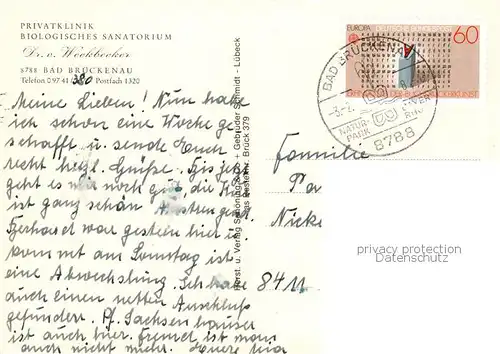 PRIVATKLINIK
BIOLOGISCHES SANATORIUM
Dr. v. Weckbecker
8788 BAD BRÜCKENAU
Telefon 0 97 41 380 Postfach 1320
Meine Lieben! Nun habe
ich schon eine Woche ge-
schafft u. sende Euch
recht herzl. Grüße. Bis jetzt
geht es mir noch gut, die
ist ganz schön Anstrengend.
Gerhard war gestern hier u.
kommt am Sonntag ist
eine Abwechslung. Ich habe
auch einen netten Anschluß
gefunden. Pf. Sachsenhauser
ist auch hier. Fremd ist man
auch nicht mehr. Eure
Horst. u. Verlag Schöning & Co + Gebrüder Schmidt - Lübeck
Bestellnr. Brück 379
EUROPA
60
BAD BRÜCKENAU
NATUR-
PARK
8788
Familie
Pa
Nicke
8411
privacy protection
VMA.com